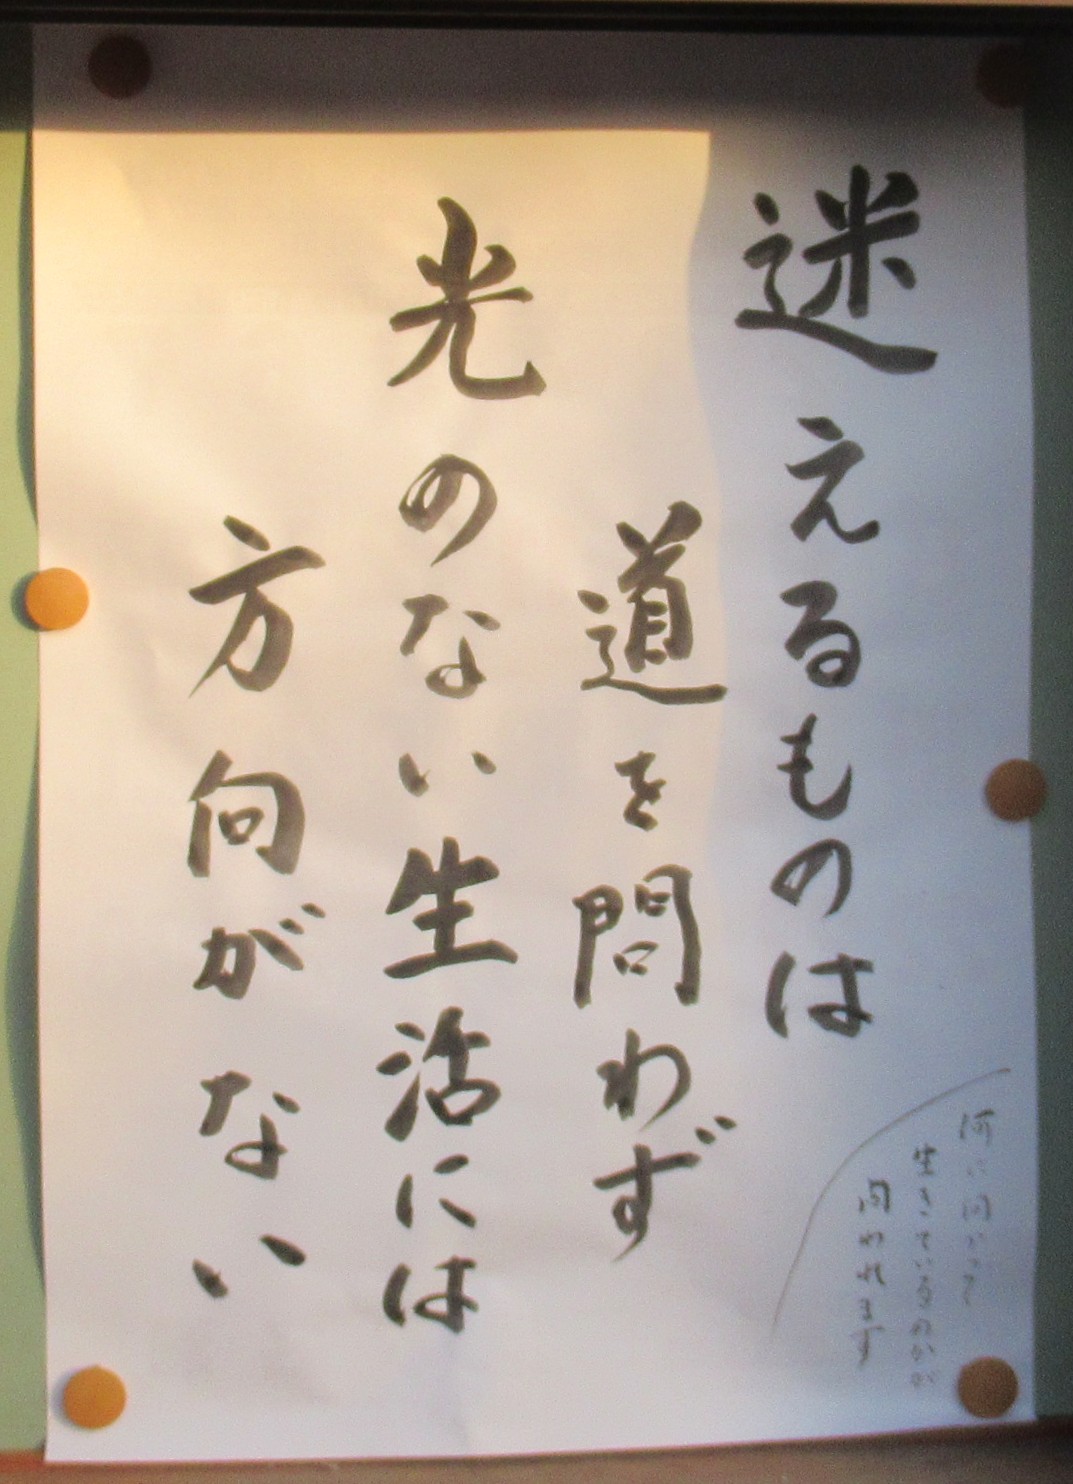 迷えるものは
道を問わず
光のない生活には
方向がない
何に向かって
生きているのかが
問われます